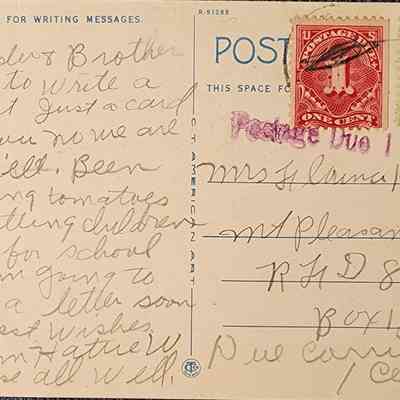 FOR WRITING MESSAGES.
& Brother
to write a
t Just a card
you no we are
well. Been
ing tomatoes
etting children
for school
am going to
a letter soon
est wishes
m Hattie W
se all well.
CT AMERICAN ART
R-91288
POST
THIS SPACE FO
U S
POSTAGE DUE
1
ONE CENT
Postage Due 1
Mrs
Mt Pleasan
R F D 8
Box 1
Due Carri
1 Ce